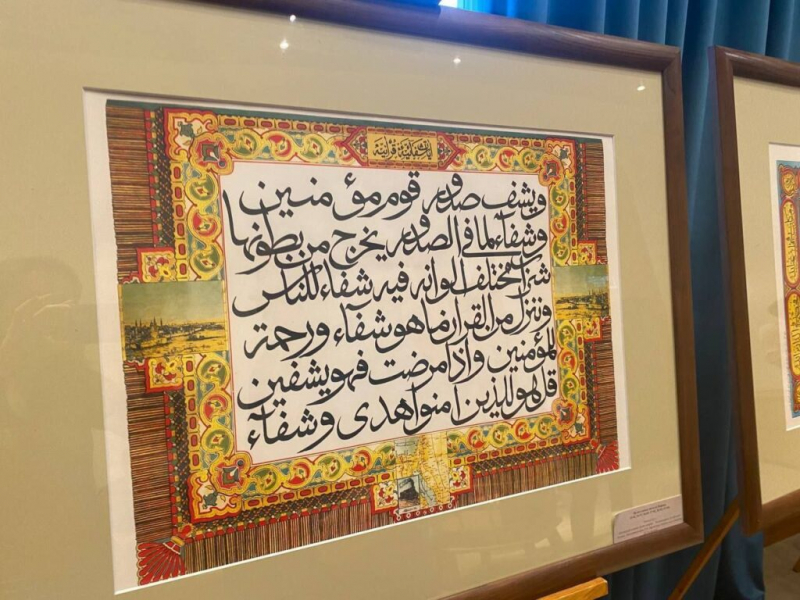 ويشف صدور قوم مؤمنين
وشفآء لما في الصدور يخرج من بطونها
شراب مختلف الوانه فيه شفاء للناس
وننزل من القران ما هو شفاء ورحمة
للمؤمنين واذا مرضت فهو يشفين
قل هو للذين امنوا هدى وشفآء